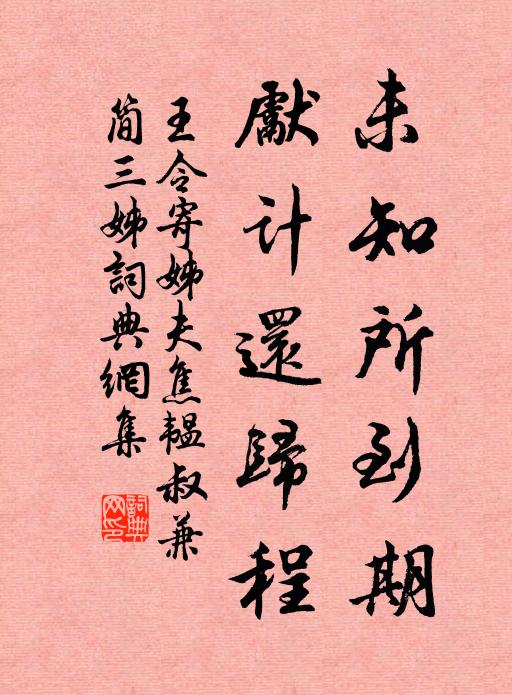 未知所到期
獻计還歸程
王令寄姊夫焦韞叔兼
簡三姊詞典網集
詞典網印